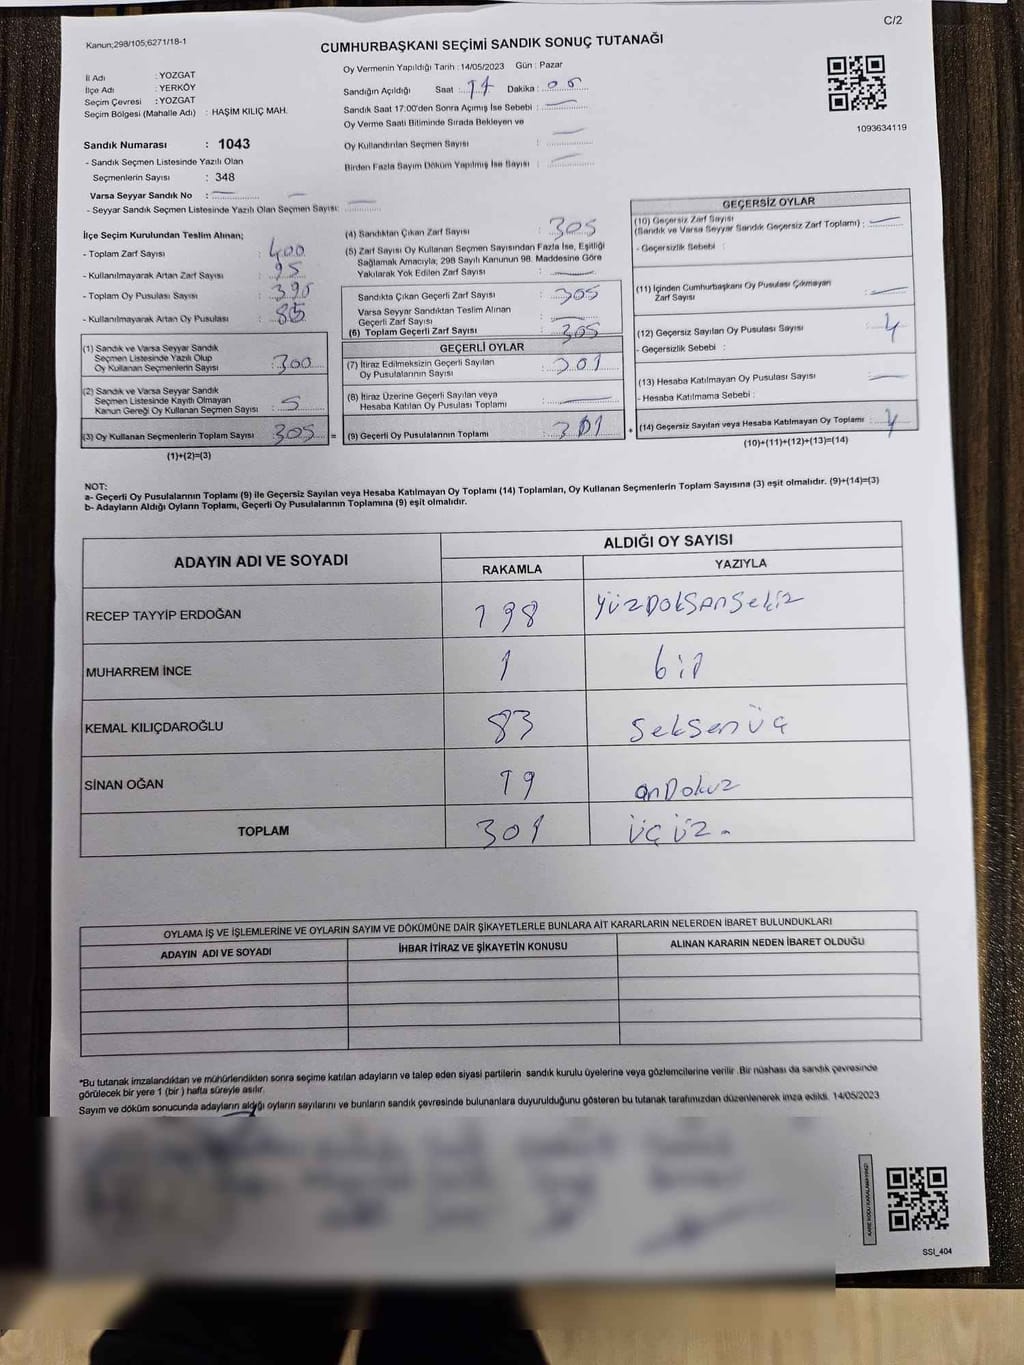 C/2
Kanun;298/105;6271/18-1
CUMHURBAŞKANI SEÇİMİ SANDIK SONUÇ TUTANAĞI
İl Adı : YOZGAT
İlçe Adı : YERKÖY
Seçim Çevresi : YOZGAT
Seçim Bölgesi (Mahalle Adı) : HAŞİM KILIÇ MAH.
Sandık Numarası : 1043
- Sandık Seçmen Listesinde Yazılı Olan
Seçmenlerin Sayısı : 348
Varsa Seyyar Sandık No :
- Seyyar Sandık Seçmen Listesinde Yazılı Olan Seçmen Sayısı:
Oy Vermenin Yapıldığı Tarih : 14/05/2023 Gün : Pazar
Sandığın Açıldığı Saat : 17 Dakika : 05
Sandık Saat 17:00'den Sonra Açılmış İse Sebebi :
Oy Verme Saati Bitiminde Sırada Bekleyen ve
Oy Kullandırılan Seçmen Sayısı :
Birden Fazla Sayım Döküm Yapılmış İse Sayısı :
1093634119
İlçe Seçim Kurulundan Teslim Alınan;
- Toplam Zarf Sayısı : 400
- Kullanılmayarak Artan Zarf Sayısı : 95
- Toplam Oy Pusulası Sayısı : 390
- Kullanılmayarak Artan Oy Pusulası : 85
(1) Sandık ve Varsa Seyyar Sandık
Seçmen Listesinde Yazılı Olup
Oy Kullanan Seçmenlerin Sayısı : 300
(2) Sandık ve Varsa Seyyar Sandık
Seçmen Listesinde Kayıtlı Olmayan
Kanun Gereği Oy Kullanan Seçmen Sayısı : 5
(3) Oy Kullanan Seçmenlerin Toplam Sayısı : 305 =
(1)+(2)=(3)
(4) Sandıktan Çıkan Zarf Sayısı : 305
(5) Zarf Sayısı Oy Kullanan Seçmen Sayısından Fazla İse, Eşitliği
Sağlamak Amacıyla; 298 Sayılı Kanunun 98. Maddesine Göre
Yakılarak Yok Edilen Zarf Sayısı :
Sandıkta Çıkan Geçerli Zarf Sayısı : 305
Varsa Seyyar Sandıktan Teslim Alınan
Geçerli Zarf Sayısı :
(6) Toplam Geçerli Zarf Sayısı : 305
GEÇERLİ OYLAR
(7) İtiraz Edilmeksizin Geçerli Sayılan
Oy Pusulalarının Sayısı : 301
(8) İtiraz Üzerine Geçerli Sayılan veya
Hesaba Katılan Oy Pusulası Toplamı :
(9) Geçerli Oy Pusulalarının Toplamı : 301 +
GEÇERSİZ OYLAR
(10) Geçersiz Zarf Sayısı
(Sandık ve Varsa Seyyar Sandık Geçersiz Zarf Toplamı) :
- Geçersizlik Sebebi :
(11) İçinden Cumhurbaşkanı Oy Pusulası Çıkmayan
Zarf Sayısı :
(12) Geçersiz Sayılan Oy Pusulası Sayısı : 4
- Geçersizlik Sebebi :
(13) Hesaba Katılmayan Oy Pusulası Sayısı :
- Hesaba Katılmama Sebebi :
(14) Geçersiz Sayılan veya Hesaba Katılmayan Oy Toplamı : 4
(10)+(11)+(12)+(13)=(14)
NOT:
a- Geçerli Oy Pusulalarının Toplamı (9) ile Geçersiz Sayılan veya Hesaba Katılmayan Oy Toplamı (14) Toplamları, Oy Kullanan Seçmenlerin Toplam Sayısına (3) eşit olmalıdır. (9)+(14)=(3)
b- Adayların Aldığı Oyların Toplamı, Geçerli Oy Pusulalarının Toplamına (9) eşit olmalıdır.
ADAYIN ADI VE SOYADI
ALDIĞI OY SAYISI
RAKAMLA YAZIYLA
RECEP TAYYİP ERDOĞAN 198 YüzDoksansekiz
MUHARREM İNCE 1 bir
KEMAL KILIÇDAROĞLU 83 Seksenüç
SİNAN OĞAN 19 onDokuz
TOPLAM 301 üçüz
OYLAMA İŞ VE İŞLEMLERİNE VE OYLARIN SAYIM VE DÖKÜMÜNE DAİR ŞİKAYETLERLE BUNLARA AİT KARARLARIN NELERDEN İBARET BULUNDUKLARI
ADAYIN ADI VE SOYADI İHBAR İTİRAZ VE ŞİKAYETİN KONUSU ALINAN KARARIN NEDEN İBARET OLDUĞU
*Bu tutanak imzalandıktan ve mühürlendikten sonra seçime katılan adayların ve talep eden siyasi partilerin sandık kurulu üyelerine veya gözlemcilerine verilir .Bir nüshası da sandık çevresinde
görülecek bir yere 1 (bir ) hafta süreyle asılır.
Sayım ve döküm sonucunda adayların aldığı oyların sayılarını ve bunların sandık çevresinde bulunanlara duyurulduğunu gösteren bu tutanak tarafımızdan düzenlenerek imza edildi. 14/05/2023
SSI_404